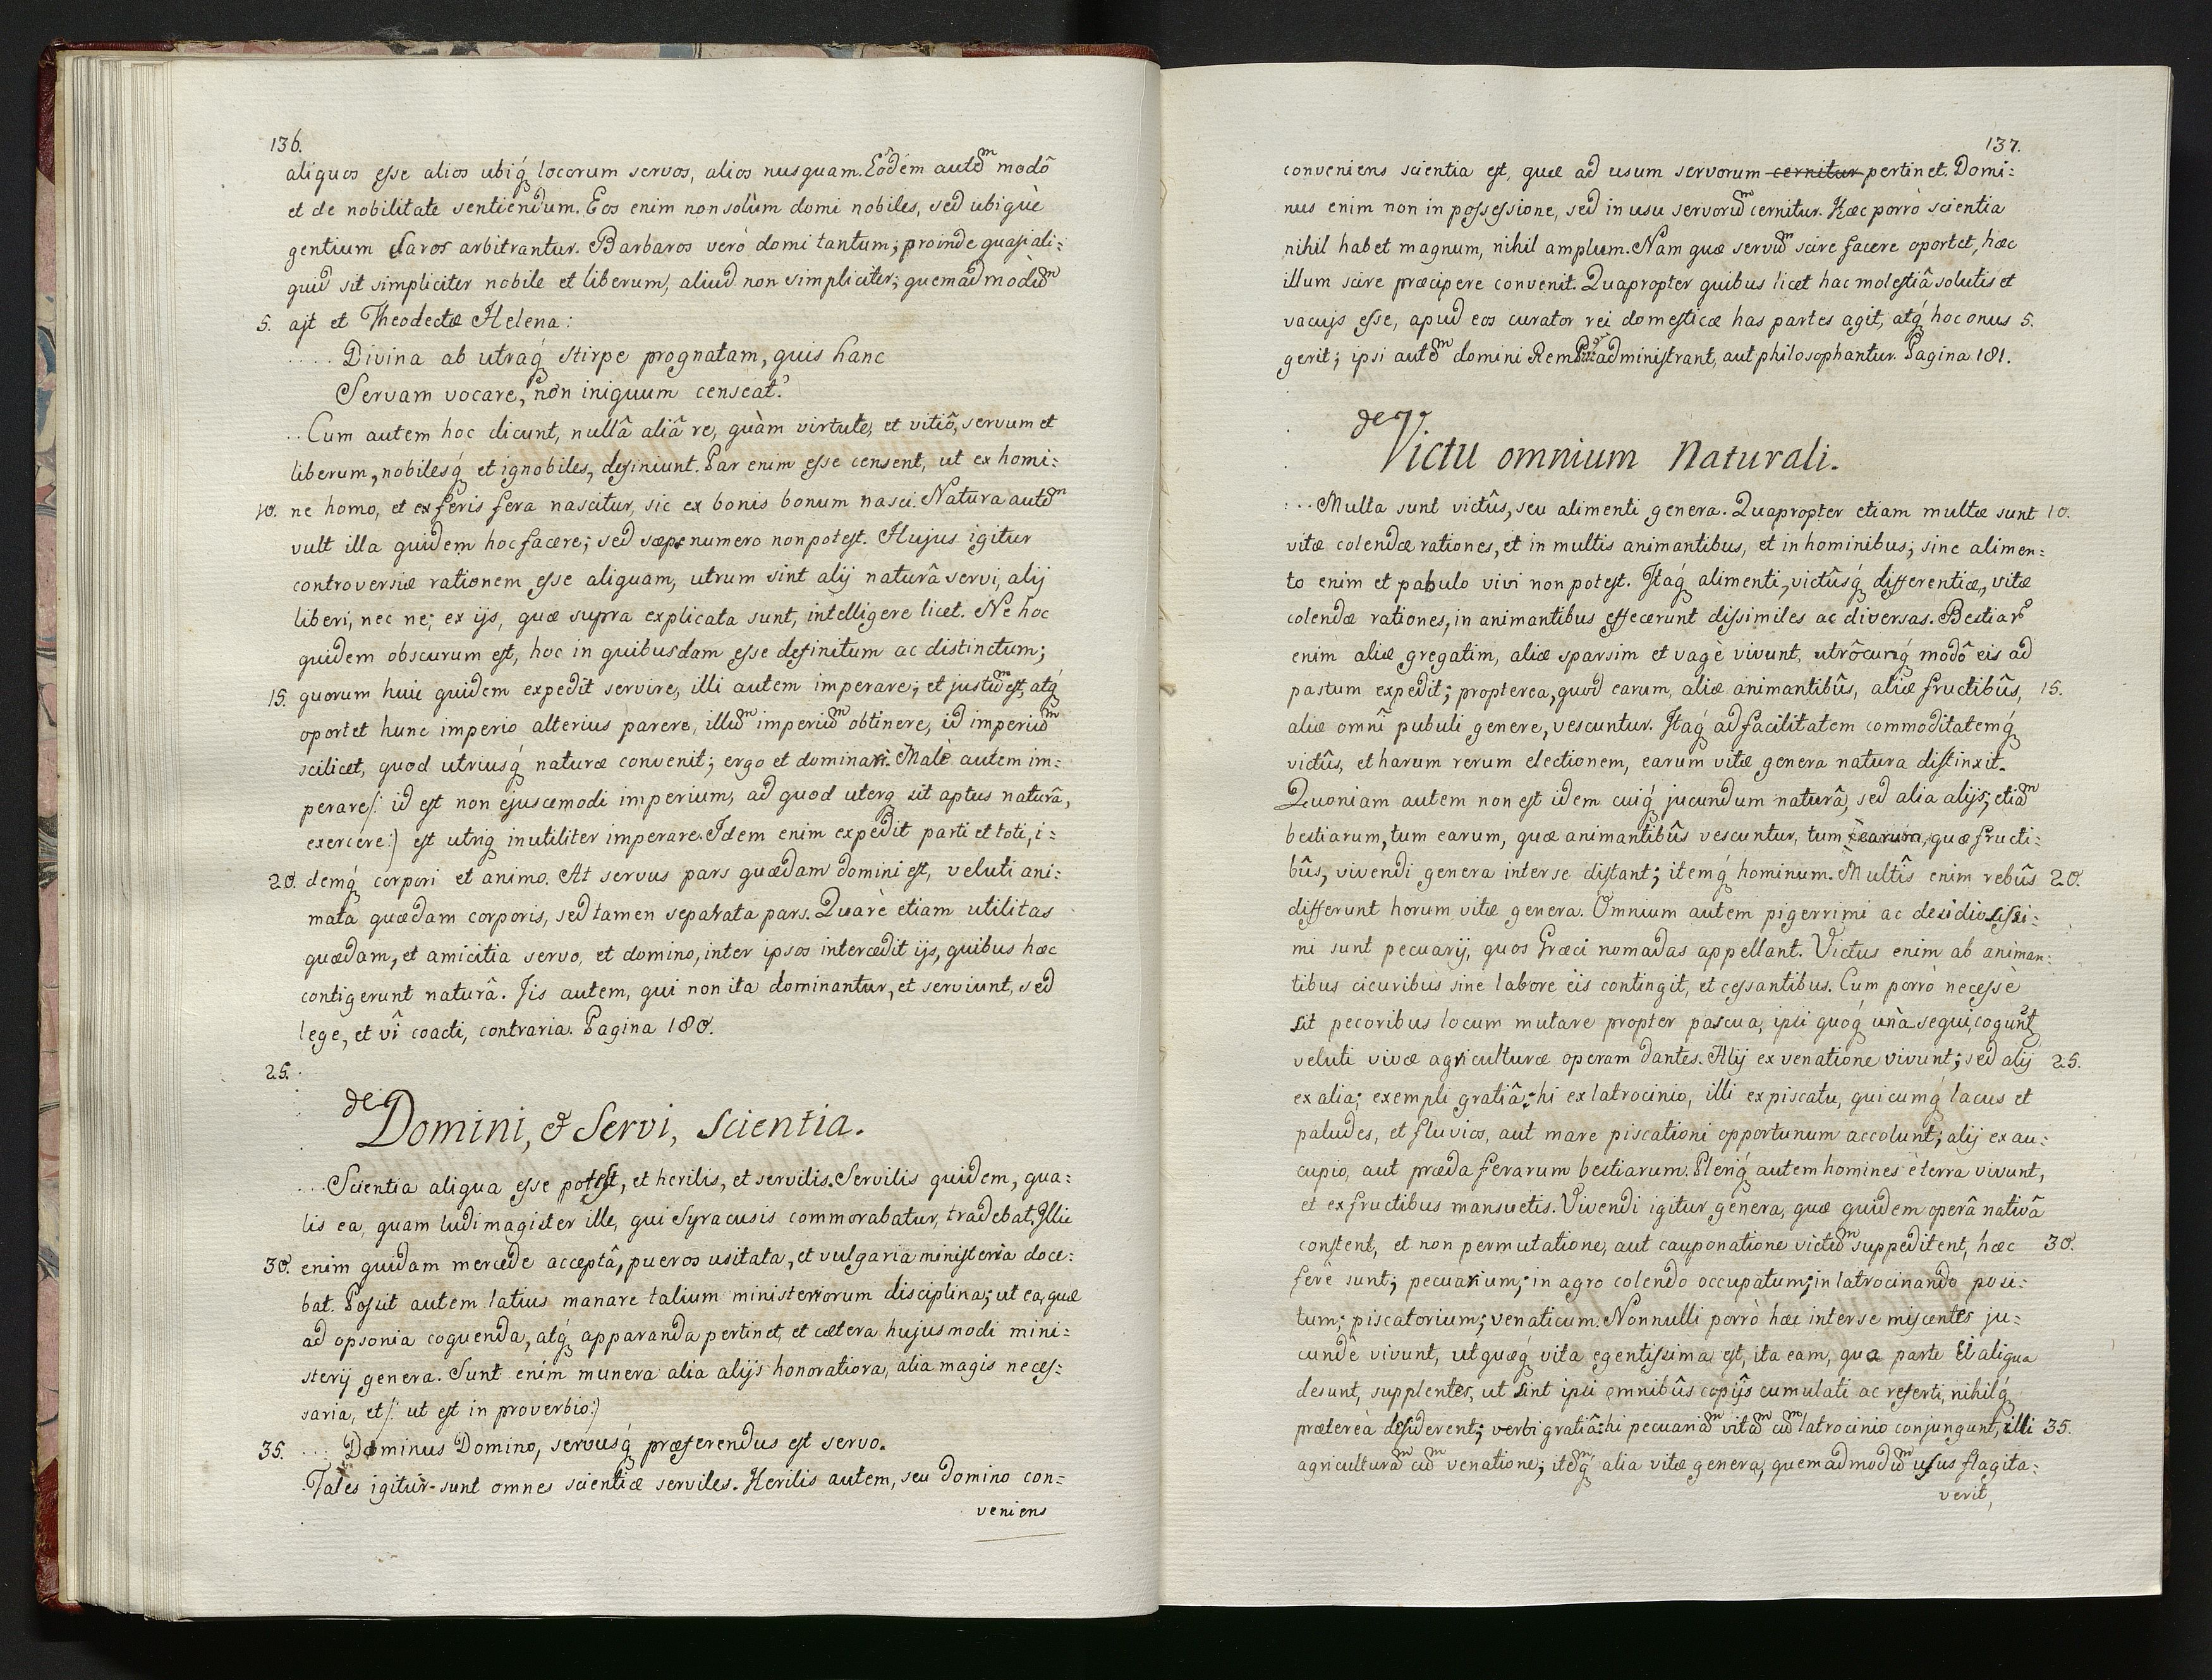 136.
aliquos esse alios ubiq́ locorum servos, alios nusquam. Eôdem autem̄ modô
et de nobilitate sentiendum. Eos enim non solùm domi nobiles, sed ubiquè
gentium claros arbitrantur. Barbaros verò domi tantum; proinde quasi ali:
quid sit simpliciter nobile et liberum, aliud non simpliciter; quemadmòdum̄
5. ajt et Theodectæ Helena:
.... Divina ab utraq́ stirpe prognatam, quis hanc
Servam vocare, non iniquum censeat?
.. Cum autem hoc dicunt, nullâ aliâ re, quàm virtute, et vitiô, servum et
liberum, nobilesq́ et ignobiles, definiunt. Par enim esse censent, ut ex homi:
10. ne homo, et ex feris fera nascitur, sic ex bonis bonum nasci. Natura autem̄
vult illa quidem hoc facere; sed sæpe numero non potest. Hujus igitur
controversiæ rationem esse aliquam, utrum sint alij naturâ servi, alij
liberi, nec ne; ex ijs, quæ supra explicata sunt, intelligere licet. Ne hoc
quidem obscurum est, hoc in quibusdam esse definitum ac distinctum;
15. quorum huic quidem expedit servire, illi autem imperare; et justum̄ est, atq́
oportet hunc imperio alterius parere, illum̄ imperium̄ obtinere, id imperium̄
scilicet, quod utriusq́ naturæ convenit; ergo et dominari. Malè autem im:
perare /: id est non ejuscemodi imperium, ad quod uterq sit aptus naturâ,
exercere:) est utriq inutiliter imperare. Idem enim expedit parti et toti, i:
20. demq́ corpori et animo. At servus pars quædam domini est, veluti ani:
mata quædam corporis, sed tamen separata pars. Quarè etiam utilitas
quædam, et amicitia servo, et domino, inter ipsos intercedit ijs, quibus hæc
contigerunt naturâ. Iis autem, qui non ita dominantur, et serviunt, sed
lege, et vî coacti, contraria. Pagina 180.
25.
de
Domini, & Servi, Scientia.
... Scientia aliqua esse potest, et herilis, et servilis. Servilis quidem, qua:
lis ea, quam ludimagister ille, qui Syracusis commorabatur, tradebat. Illic
30. enim quidam mercede acceptâ, pueros usitata, et vulgaria ministeria doce:
bat. Possit autem latius manare talium ministeriorum disciplina; ut ea, quæ
ad opsonia coquenda, atq́ apparanda pertinet, et cætera hujusmodi mini:
sterij genera. Sunt enim munera alia alijs honoratiora, alia magis neces:
saria, et /: ut est in proverbio:)
35. ... Dominus Domino, servusq́ præferendus est servo.
Tales igitur sunt omnes scientiæ serviles. Herilis autem, seu domino con:
veniens
137.
conveniens scientia est, quæ ad usum servorum cernitur pertinet. Domi:
nus enim non in possessione, sed in usu servorum̄ cernitur. Hæc porrò scientia
nihil habet magnum, nihil amplum. Nam quæ servum̄ scire facere oportet, hæc
illum scire præcipere convenit. Quapropter quibus licet hac molestiâ solutis et
vacujs esse, apud eos curator rei domesticæ has partes agit, atq́ hoc onus 5.
gerit; ipsi autem̄ domini Rem administrant, aut philosophantur. Pagina 181.
de
Victu omnium Naturali.
... Multa sunt victûs, seu alimenti genera. Quapropter etiam multæ sunt 10.
vitæ colendæ rationes, et in multis animantibus, et in hominibus; sine alimen:
to enim et pabulo vivi non potest. Itaq́ alimenti, victûsq́ differentiæ, vitæ
colendæ rationes, in animantibus effecerunt dissimiles ac diversas. Bestiar̃
enim aliæ gregatim, aliæ sparsim et vagè vivunt, utrôcunq́ modô eis ad
pastum expedit; propterea, quod earum, aliæ animantibûs, aliæ fructibûs, 15.
aliæ omnî pubuli genere, vescuntur. Itaq́ ad facilitatem commoditatemq́
victûs, et harum rerum electionem, earum vitæ genera natura distinxit.
Quoniam autem non est idem cuiq́ jucundum naturâ, sed alia alijs; etiam̄
bestiarum, tum earum, quæ animantibûs vescuntur, tum earum, quæ fructi:
bûs, vivendi genera inter se distant; itemq́ hominum. Multîs enim rebûs 20.
differunt horum vitæ genera. Omnium autem pigerrimi ac desidiosissi:
mi sunt pecuarij, quos Græci nomadas appellant. Victus enim ab animan:
tibus cicuribus sine labore eis contingit, et cessantibus. Cum porrò necesse
sit pecoribus locum mutare propter pascua, ipsi quoq́ unà sequi coguntq
veluti vivæ agriculturæ operam dantes. Alij ex venatione vivunt; sed alij 25.
ex alia; exempli gratiâ: hi ex latrocinio, illi ex piscatu, quicumq́ lacus et
paludes, et fluvios, aut mare piscationi opportunum accolunt; alij ex au:
cupio, aut præda ferarum bestiarum. Pleriq́ autem homines è terra vivunt,
et ex fructibus mansuetis. Vivendi igitur genera, quæ quidem operâ nativâ
constent, et non permutatione, aut cauponatione victum̄ suppeditent, hæc 30.
ferè sunt; pecuarium; in agro colendo occupatum; in latrocinando posi:
tum; piscatorium; venaticum. Nonnulli porrò hæc inter se miscentes ju:
cundè vivunt, ut quæq́ vita egentissima est, ita eam, qua parte Ei aliqua
desunt, supplentes, ut sint ipsi omnibûs copijs cumulati ac referti, nihilq́
prætereà desiderent; verbi gratiâ: hi pecuariam̄ vitam̄ cum̄ latrocinio conjungunt, illi 35.
agriculturam̄ cum̄ venatione; item̄q́ alia vitæ genera, quemadmodum̄ usus flagita:
verit,